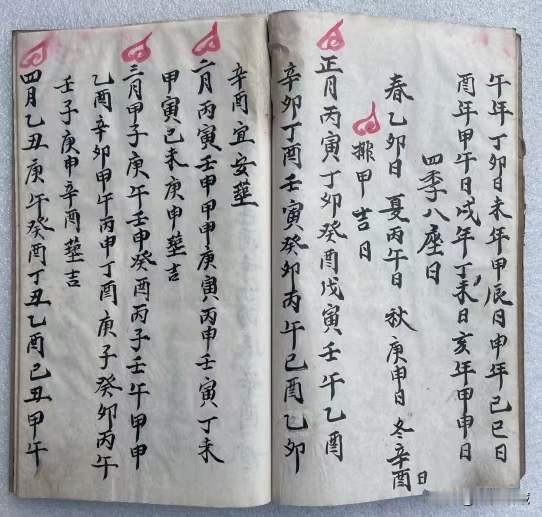 午年丁卯日未年甲辰日申年己巳日
酉年甲午日戌年丁未日亥年甲申日
四季八座日
春乙卯日 夏丙午日 秋庚申日 冬辛酉日
排甲吉日
正月丙寅丁卯癸酉戊寅壬午乙酉
辛卯丁酉壬寅癸卯丙午己酉乙卯
辛酉宜安葬
二月丙寅壬申甲申庚寅丙申壬寅丁未
甲寅己未庚申葬吉
三月甲子庚午壬申癸酉丙子壬午甲申
乙酉辛卯甲午丙申丁酉庚子癸卯丙午
壬子庚申辛酉葬吉
四月乙丑庚午癸酉丁丑乙酉己丑甲午